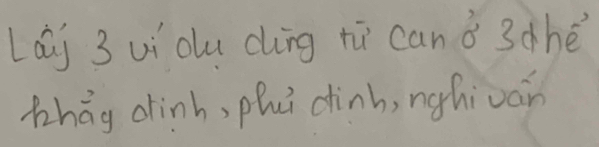 Lấy 3 ví dụ dùng từ can ở 3 thể
khẳg định, phủ định, nghi vấn